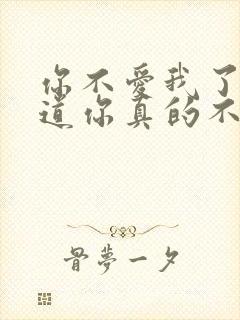 你不愛我了
道你真的不
骨夢一夕